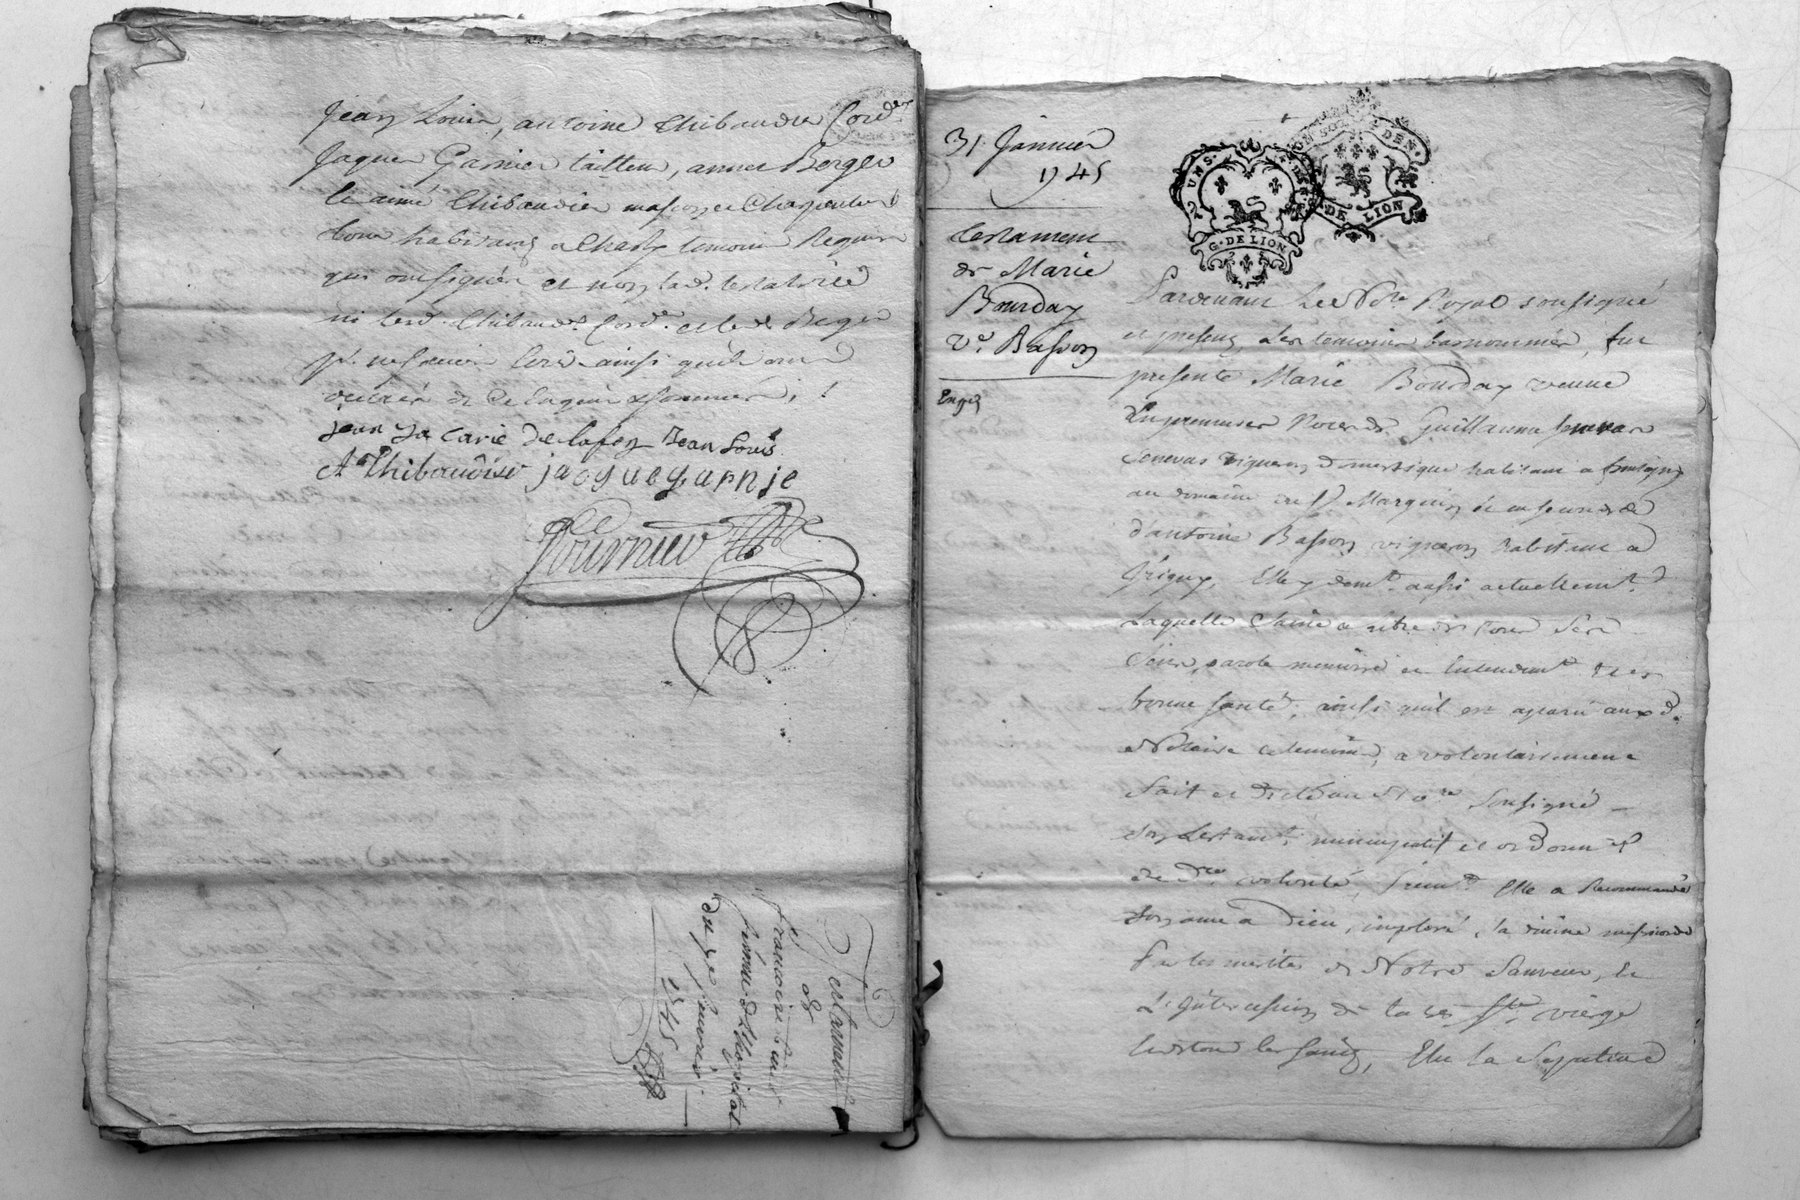 Jean Louis, antoine Thibaudier Cord.er
Jaques Garnier tailleur, annet Berger
le ainé Thibaudier masson et Charpentier
tous habitans a Charly temoins Requis
qui ont signés et non lad. testatrice
ni led. Thibaud.r Cord.er et led. Berger
p.r ne scavoir Ecrire ainsi quils ont
declarés de ce Enquis & sommés ./.
jean
Jean Louis
A Thibaudier jacque garnie
fournier
Testament
de
francoise
femme d
du 22 janvier
1745
31 Janvier
1745
testament
de Marie
Bourday
v.e Basson
Expéd
DE LION
G. DE LION
Pardevant Le No.re Royal soussigné
et presens les temoins bas nommés, fut
presente Marie Bourday veuve
En premieres Noces de Guillaume
vigneron domestique habitant a
au domaine du S.r Marquis et en secondes
d'antoine Basson vigneron habitant a
Grigny, Elle y dem.t aussi actuellem.t
Laquelle Saine et libre de tous ses
Sens, parole memoire et Entendem.t & en
bonne santé, ainsi quil est aparu auxd.
Notaire et temoins, a volontairement
fait et dicté au No.re soussigné
son testam.t nuncupatif et ordonn.ce
de d.re volonté, prem.t Elle a Recommandé
son ame a Dieu, imploré, la divine misericorde
Par les merites de Notre Sauveur, et
L'Intercession de la tres S.te vierge
et de tous les saints, Elu la sepulture